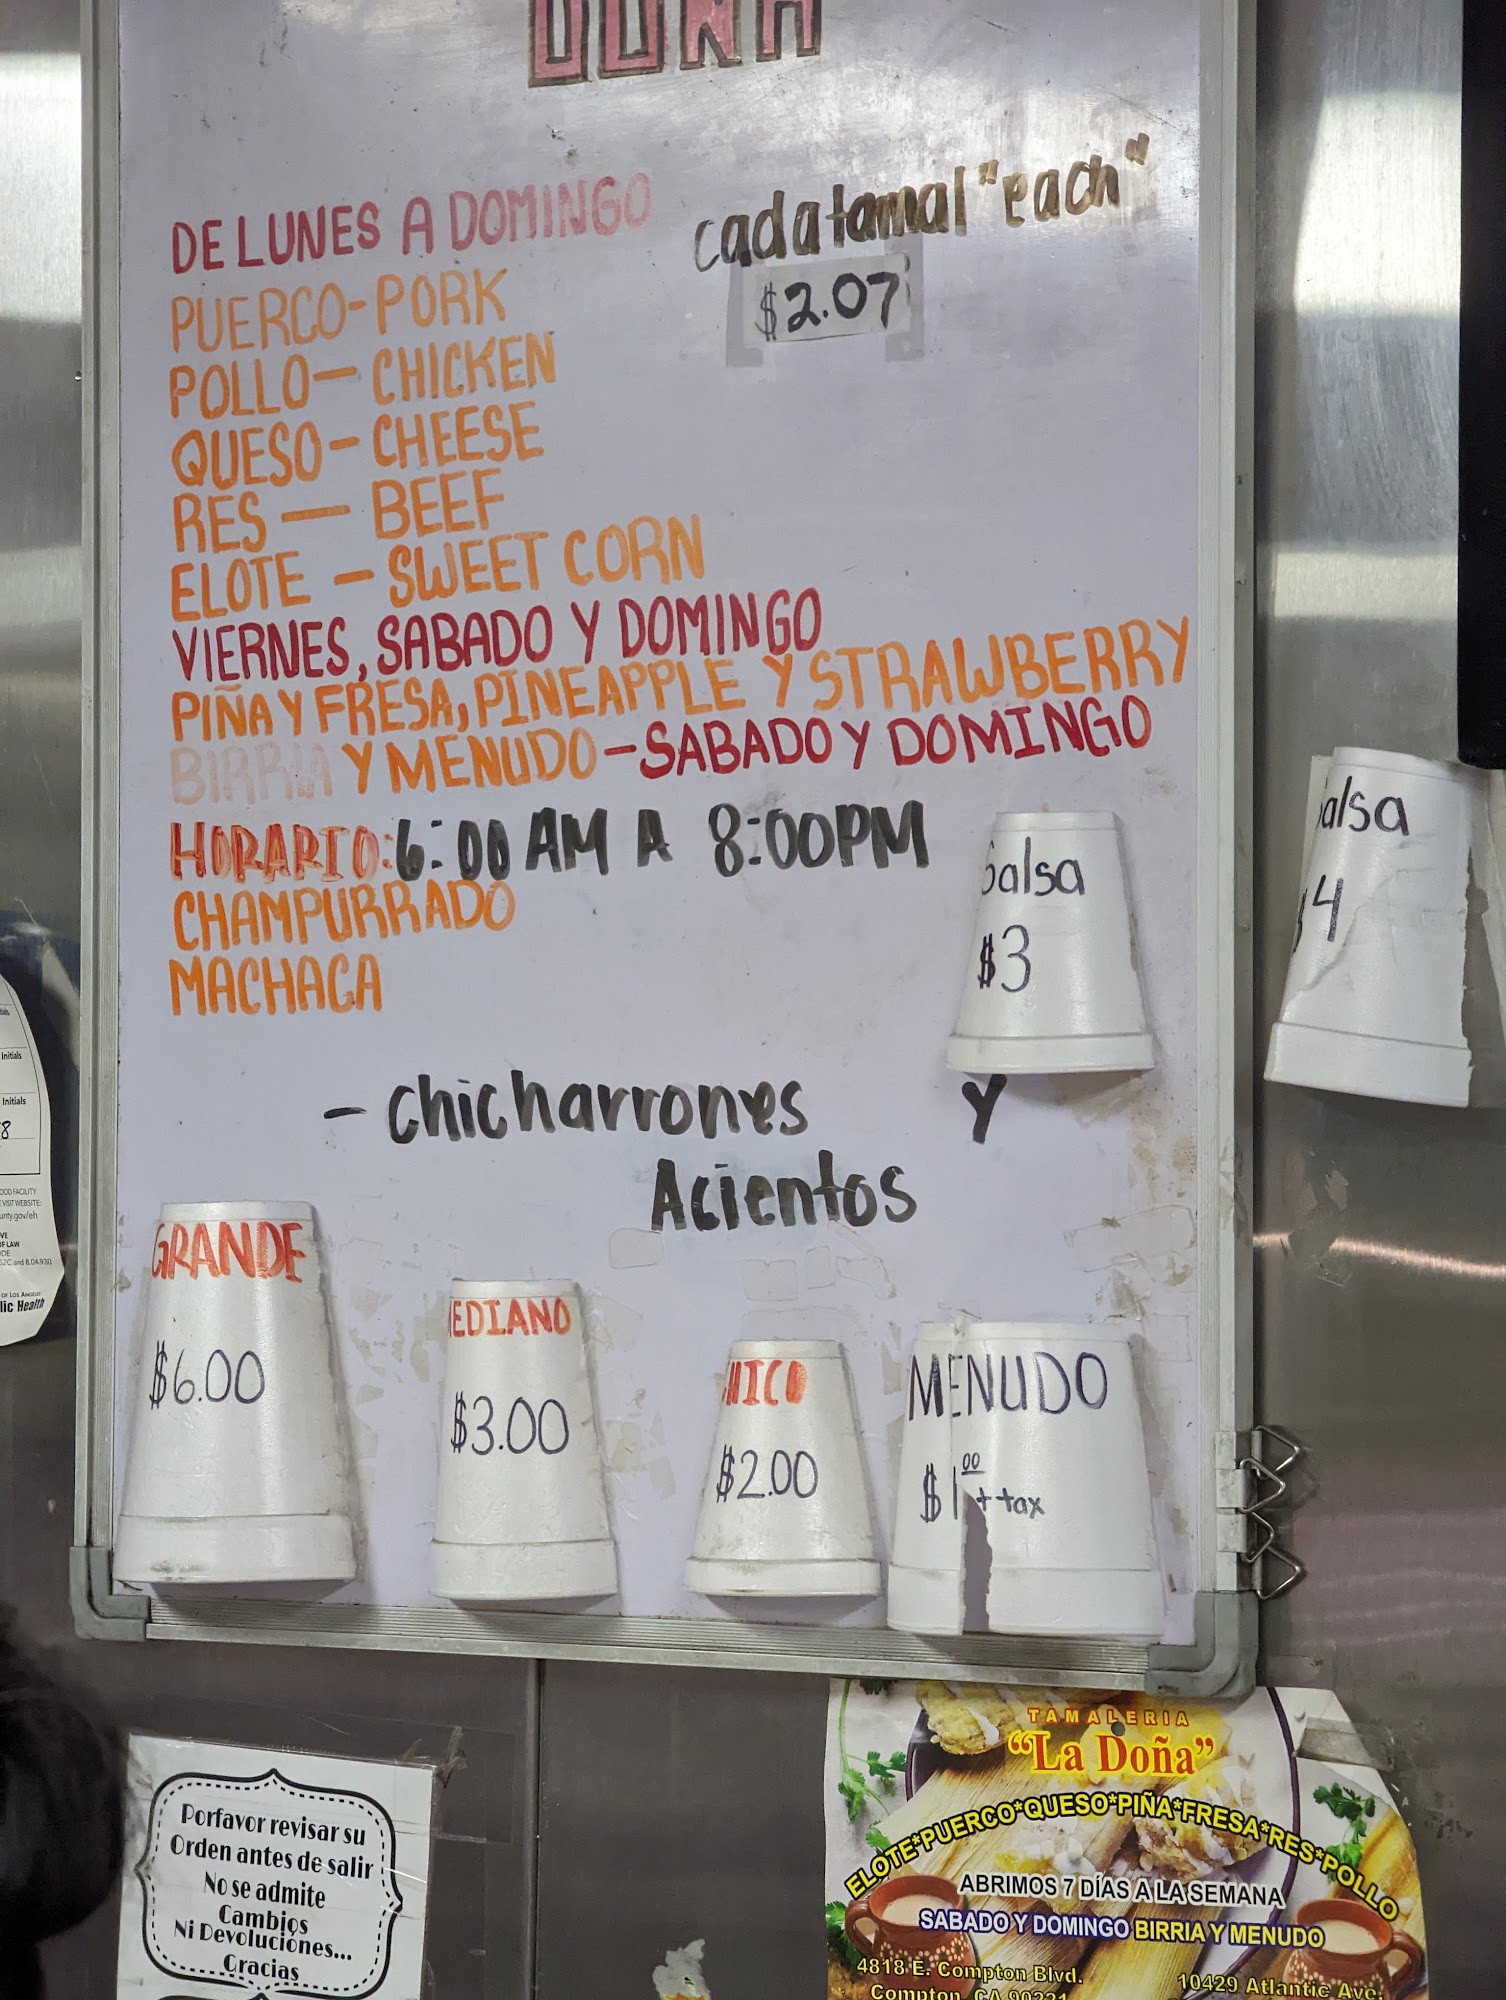 DOÑA
DE LUNES A DOMINGO
cada tamal "each"
$2.07
PUERCO-PORK
POLLO-CHICKEN
QUESO-CHEESE
RES-BEEF
ELOTE-SWEET CORN
VIERNES, SABADO Y DOMINGO
PIÑA Y FRESA, PINEAPPLE Y STRAWBERRY
BIRRIA Y MENUDO-SABADO Y DOMINGO
HORARIO: 6:00 AM A 8:00PM
CHAMPURRADO
MACHACA
Salsa
$3
alsa
$4
- chicharrones y
Acientos
GRANDE
$6.00
EDIANO
$3.00
HICO
$2.00
MENUDO
+ tax
Initials
Initials
8
OOD FACILITY
VISIT WEBSITE:
unty.gov/eh
OF LAW
52C and 8.04.930
OF LOS ANGELES
lic Health
Porfavor revisar su
Orden antes de salir
No se admite
Cambios
Ni Devoluciones...
Gracias
TAMALERIA
"La Doña"
ELOTE*PUERCO*QUESO*PIÑA*FRESA*RES*POLLO
ABRIMOS 7 DÍAS A LA SEMANA
SABADO Y DOMINGO BIRRIA Y MENUDO
4818 E. Compton Blvd.
Compton, CA 90221
10429 Atlantic Ave.